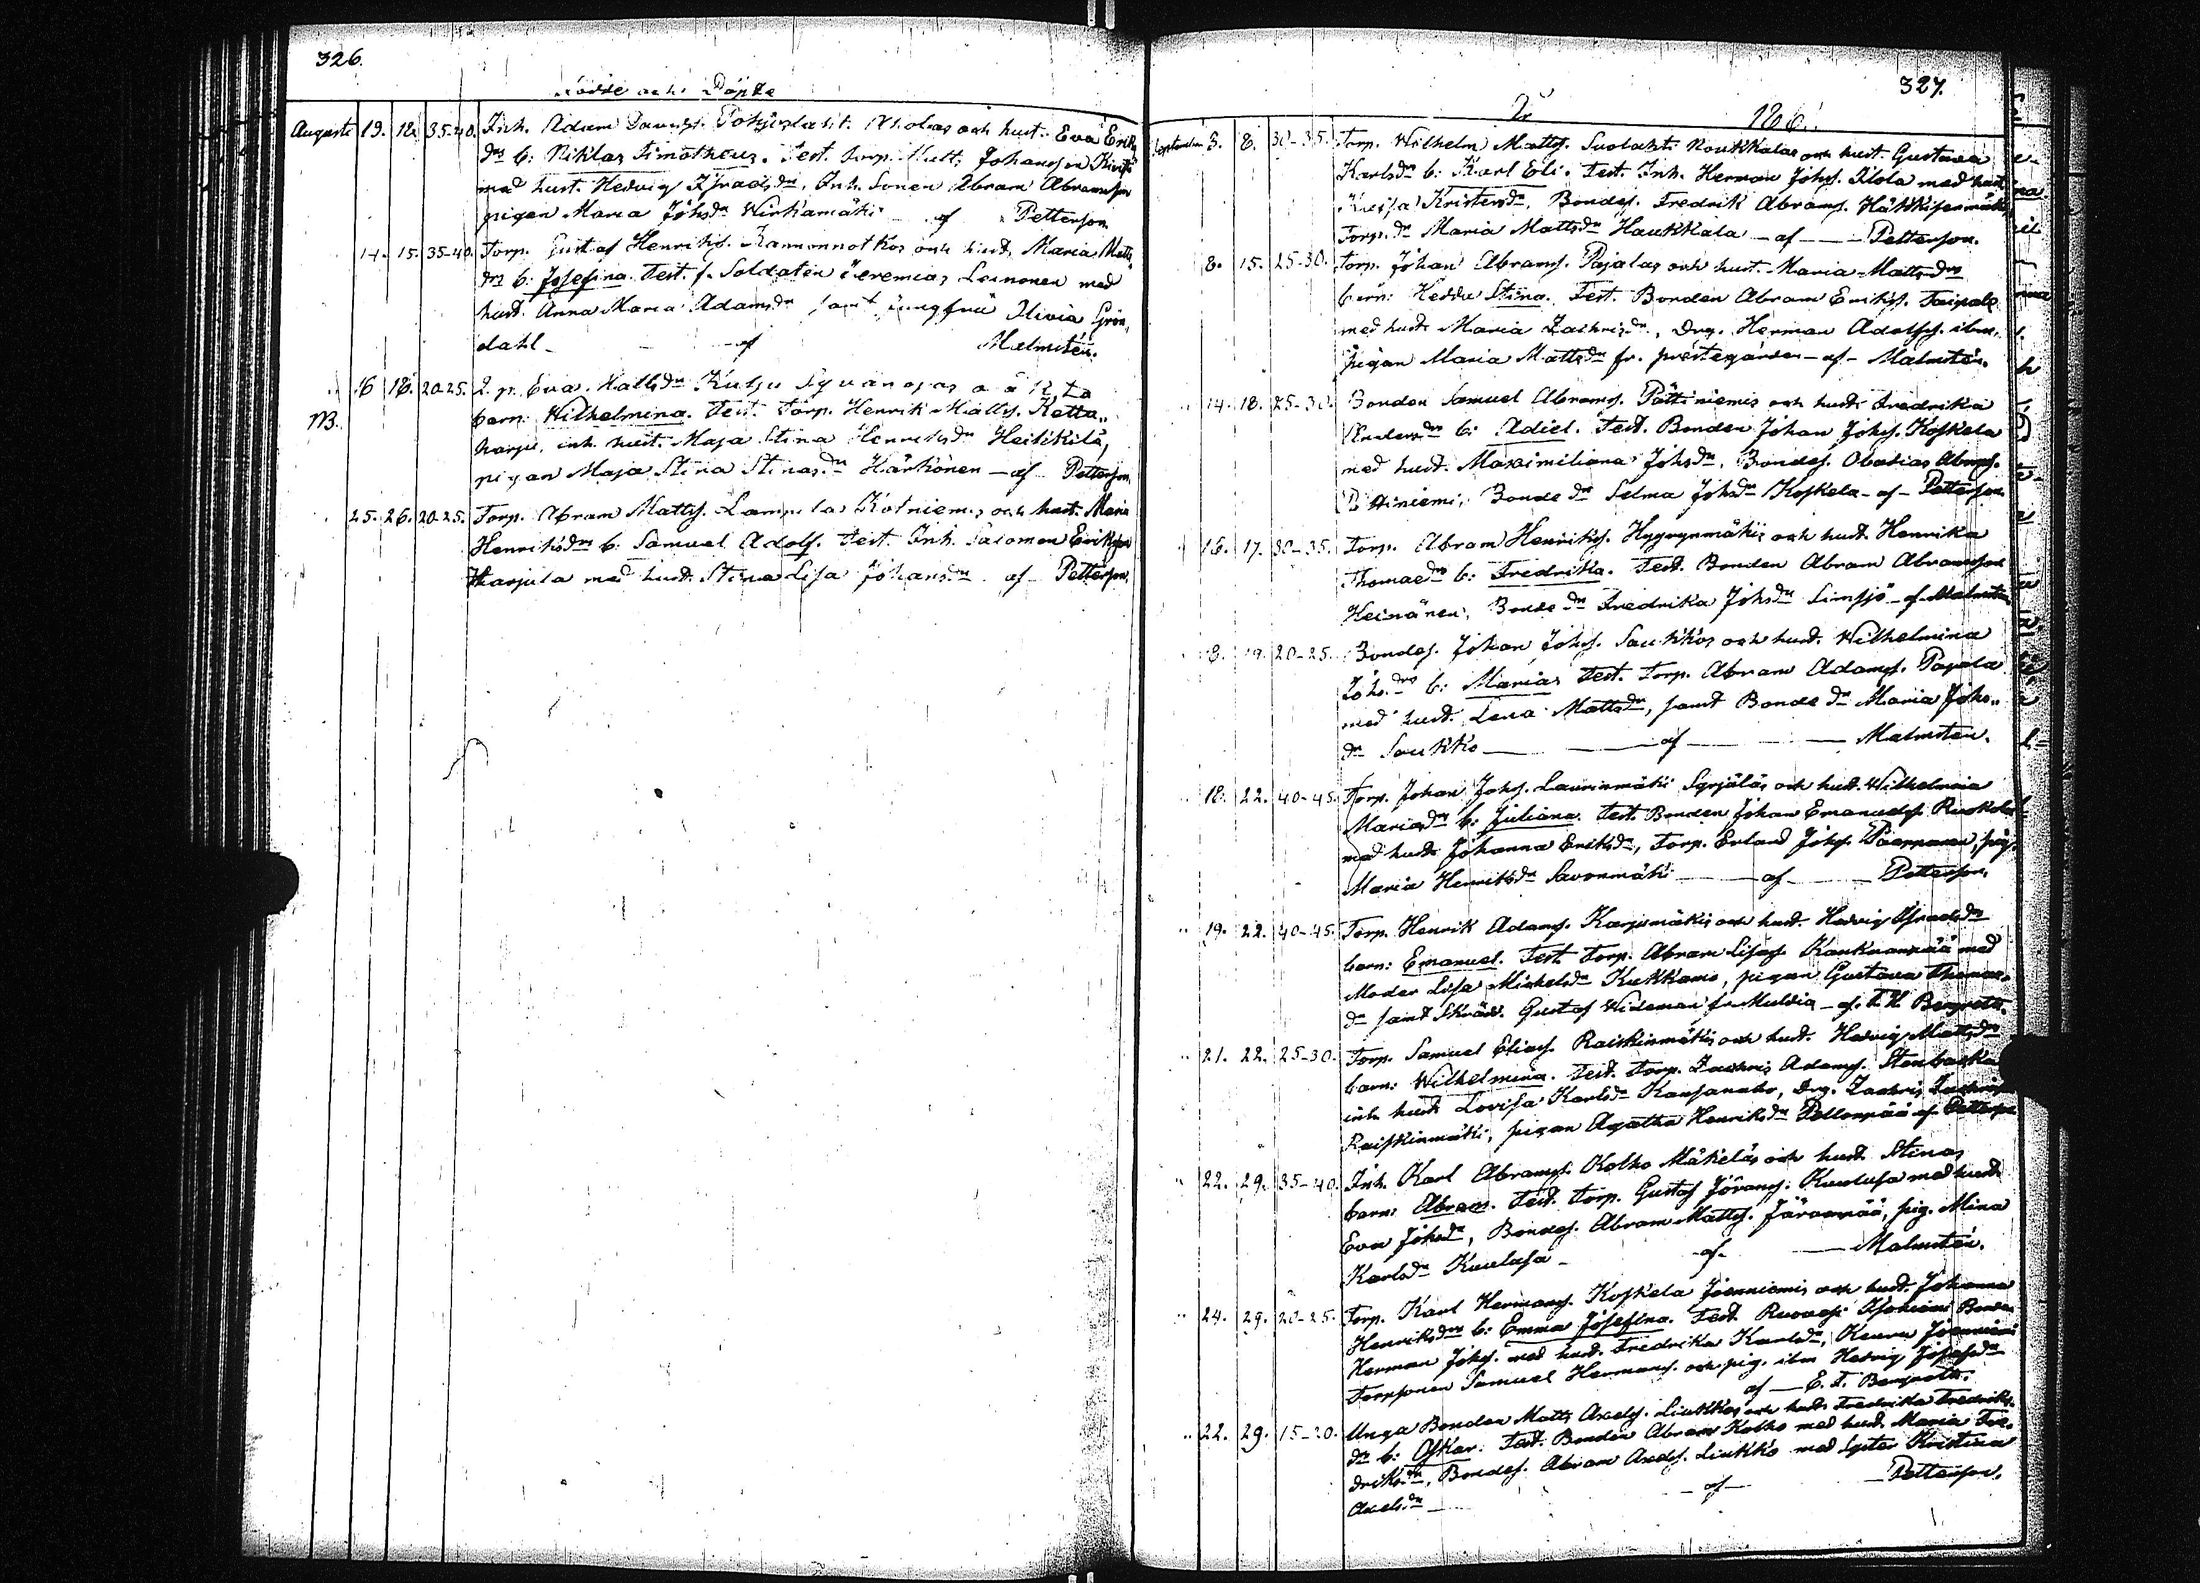 326.
Födde och Döpte
Augusti 19. 12. 35-40. Inh. Adam och hust. Eva Eriks
drs b: Niklas Timotheus. Test. Torp. Matts Johansson
med hust. Hedvig Isracsdr, Inh. Sonen Abram Abramsson
pigan Maria Johsdr Wirkamäki af Petterson.
14. 15. 35-40. Torp. Gustaf Henriks. och hust. Maria Matts
drs b: Josefina. Test. f. Soldaten Jeremias Leinonen med
hust. Anna Maria Adamsdr samt jungfru Olivia Grön,
dahl - af Malmstén.
16 18. 20-25. Q. p. Eva Mattsdr
NB. barn: Wilhelmina. Test. Torp. Henrik Matts. Ketta,,
harju, inh. hust. Maja Stina Henriksdr Heikkilä,
pigan Maja Stina Stinasdr Härkönen - af Petterson.
25. 26. 20-25. Torp. Abram Matts. Kotniemis och hust. Maria
Henriksdrs b: Samuel Adolf. Test. Inh. Salomon Eriksson
Harjula med hust. Stina Lisa Johansdr af Petterson.
327.
År 186
September 5. 8. 30-35. Torp. Wilhelm Matts. Haukkalas och hust. Gustava
Karlsdrs b: Karl Eli. Test. Inh. Herman Johs. Ilola med hust
Kristersdr, Bondes. Fredrik Abrams.
Torp. dr Maria Mattsdr Haukkala - af - Petterson.
8. 15. 25-30. Torp. Johan Abrams. Pajalas och hust. Maria Mattsdrs
barn: Hedda Stina. Test. Bonden Abram Eriks. Taipale
med hust. Maria Zachrisdr, Drg. Herman Adolfs. ibm.
pigan Maria Mattsdr fr. prestegården - af - Malmstén.
14. 18. 25-30. Bonden Samuel Abrams. Pöttiniemis och hust. Fredrika
Andersdrs b: Adiel. Test. Bonden Johan Johs. Koskela
med hust. Maximiliana Johsdr, Bondes. Obadias Abrams.
Pöttiniemi, Bonde dr Selma Johsdr Koskela - af - Petterson.
16. 17. 30-35. Torp. Abram Henriks. Hyyrynmäkis och hust. Henrika
Thomasdrs b: Fredrika. Test. Bonden Abram Abramsson
Heinänen, Bonde dr Fredrika Johsdr Limsjö - af Malmstén
18. 19. 20-25. Bondes. Johan Johs. Saukkos och hust. Wilhelmina
Johs.drs b: Marias Test. Torp. Abram Adams. Pajala
med hust. Lena Mattsdr, samt Bonde dr Maria Johs,,
dr Saukko - af - Malmstén.
18. 22. 40-45. Torp. Johan Johs. Laurinmäki Syrjäläs och hust. Wilhelmina
Mariasdrs b: Juliana. Test. Bonden Johan Emanuels.
med hust. Johanna Eriksdr, Torp. Erland Johs. Päärnänen, pig.
Maria Henriksdr Savonmäki - af - Petterson.
19. 22. 40-45. Torp. Henrik Adams. Karjumäkis och hust. Hedvig Isracsdrs
barn: Emanuel. Test. Torp. Abram Lisas. Kaukuanpää med
Moder Lisa Mickelsdr Kukkamo, pigan Gustava Thomas,
dr samt Skrädd. Gustaf Wideman fr Multia - af. Bergroth.
21. 22. 25-30. Torp. Samuel Elias. Raiskinmäkis och hust. Hedvig Mattsdrs
barn: Wilhelmina. Test. Torp. Zachris Adams. Stenbacka
inh. hust. Lovisa Karlsdr Kansanaho, Drg. Zachris Zachris
Raiskinmäki, pigan Agatha Henriksdr Pellonpää af Petterson
22. 29. 35-40. Inh. Karl Abrams. Kolho Mäkeläs och hust. Stinas
barn: Abram. Test. Torp. Gustaf Görans. Kuulasa med hust.
Eva Johsdr, Bondes. Abram Matts. Järänpää, pig. Mina
Karlsdr Kuulasa - af - Malmstén.
24. 29. 20-25. Torp. Karl Hermans. Koskela Joenniemis och hust. Johanna
Henriksdrs b: Emma Josefina. Test. Ruovesi Bonden
Herman Johs. med hust. Fredrika Karlsdr, Keuru Joenniemi
Torpsonen Samuel Hermans. och pig. ibm Hedvig Josefsdr
af - E. F. Bergroth.
22. 29. 15-20. Unga Bonden Matts Axels. Liukkos och hust. Fredrika Fredriks,
dr b: Oskar. Test. Bonden Abram Kolho med hust. Maria Fre,
driksdr, Bondes. Abram Axels. Liukko med syster Kristina
Axelsdr - af - Petterson.